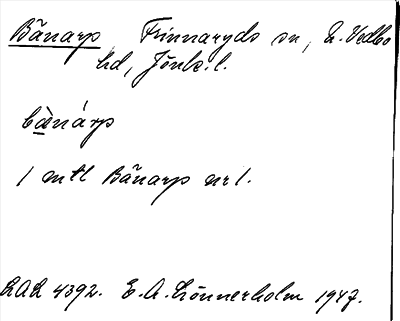 Bänarp, Finnaryds sn, N. Vedbo
hd, Jönk. l.
bä̀nárp
1 mtl Bänarp nr 1.
LAL 4392. E. A. Lönnerholm 1947.